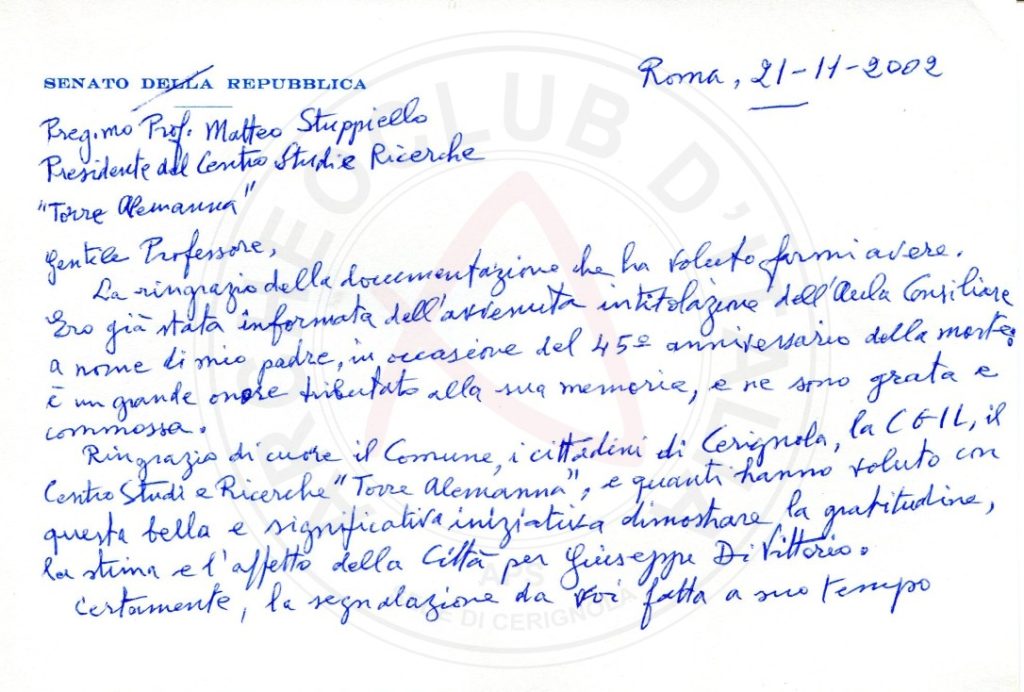 SENATO DELLA REPUBBLICA
Roma, 21-11-2002
Preg.mo Prof. Matteo Stuppiello
Presidente del Centro Studi e Ricerche
"Torre Alemanna"
Gentile Professore,
La ringrazio della documentazione che ha voluto farmi avere.
Ero già stata informata dell'avvenuta intitolazione dell'Aula Consiliare
a nome di mio padre, in occasione del 45º anniversario della morte:
è un grande onore tributato alla sua memoria, e ne sono grata e
commossa.
Ringrazio di cuore il Comune, i cittadini di Cerignola, la CGIL, il
Centro Studi e Ricerche "Torre Alemanna", e quanti hanno voluto con
questa bella e significativa iniziativa dimostrare la gratitudine,
la stima e l'affetto della Città per Giuseppe Di Vittorio.
Certamente, la segnalazione da voi fatta a suo tempo
ARCHEOCLUB D'ITALIA
APS
SEDE DI CERIGNOLA